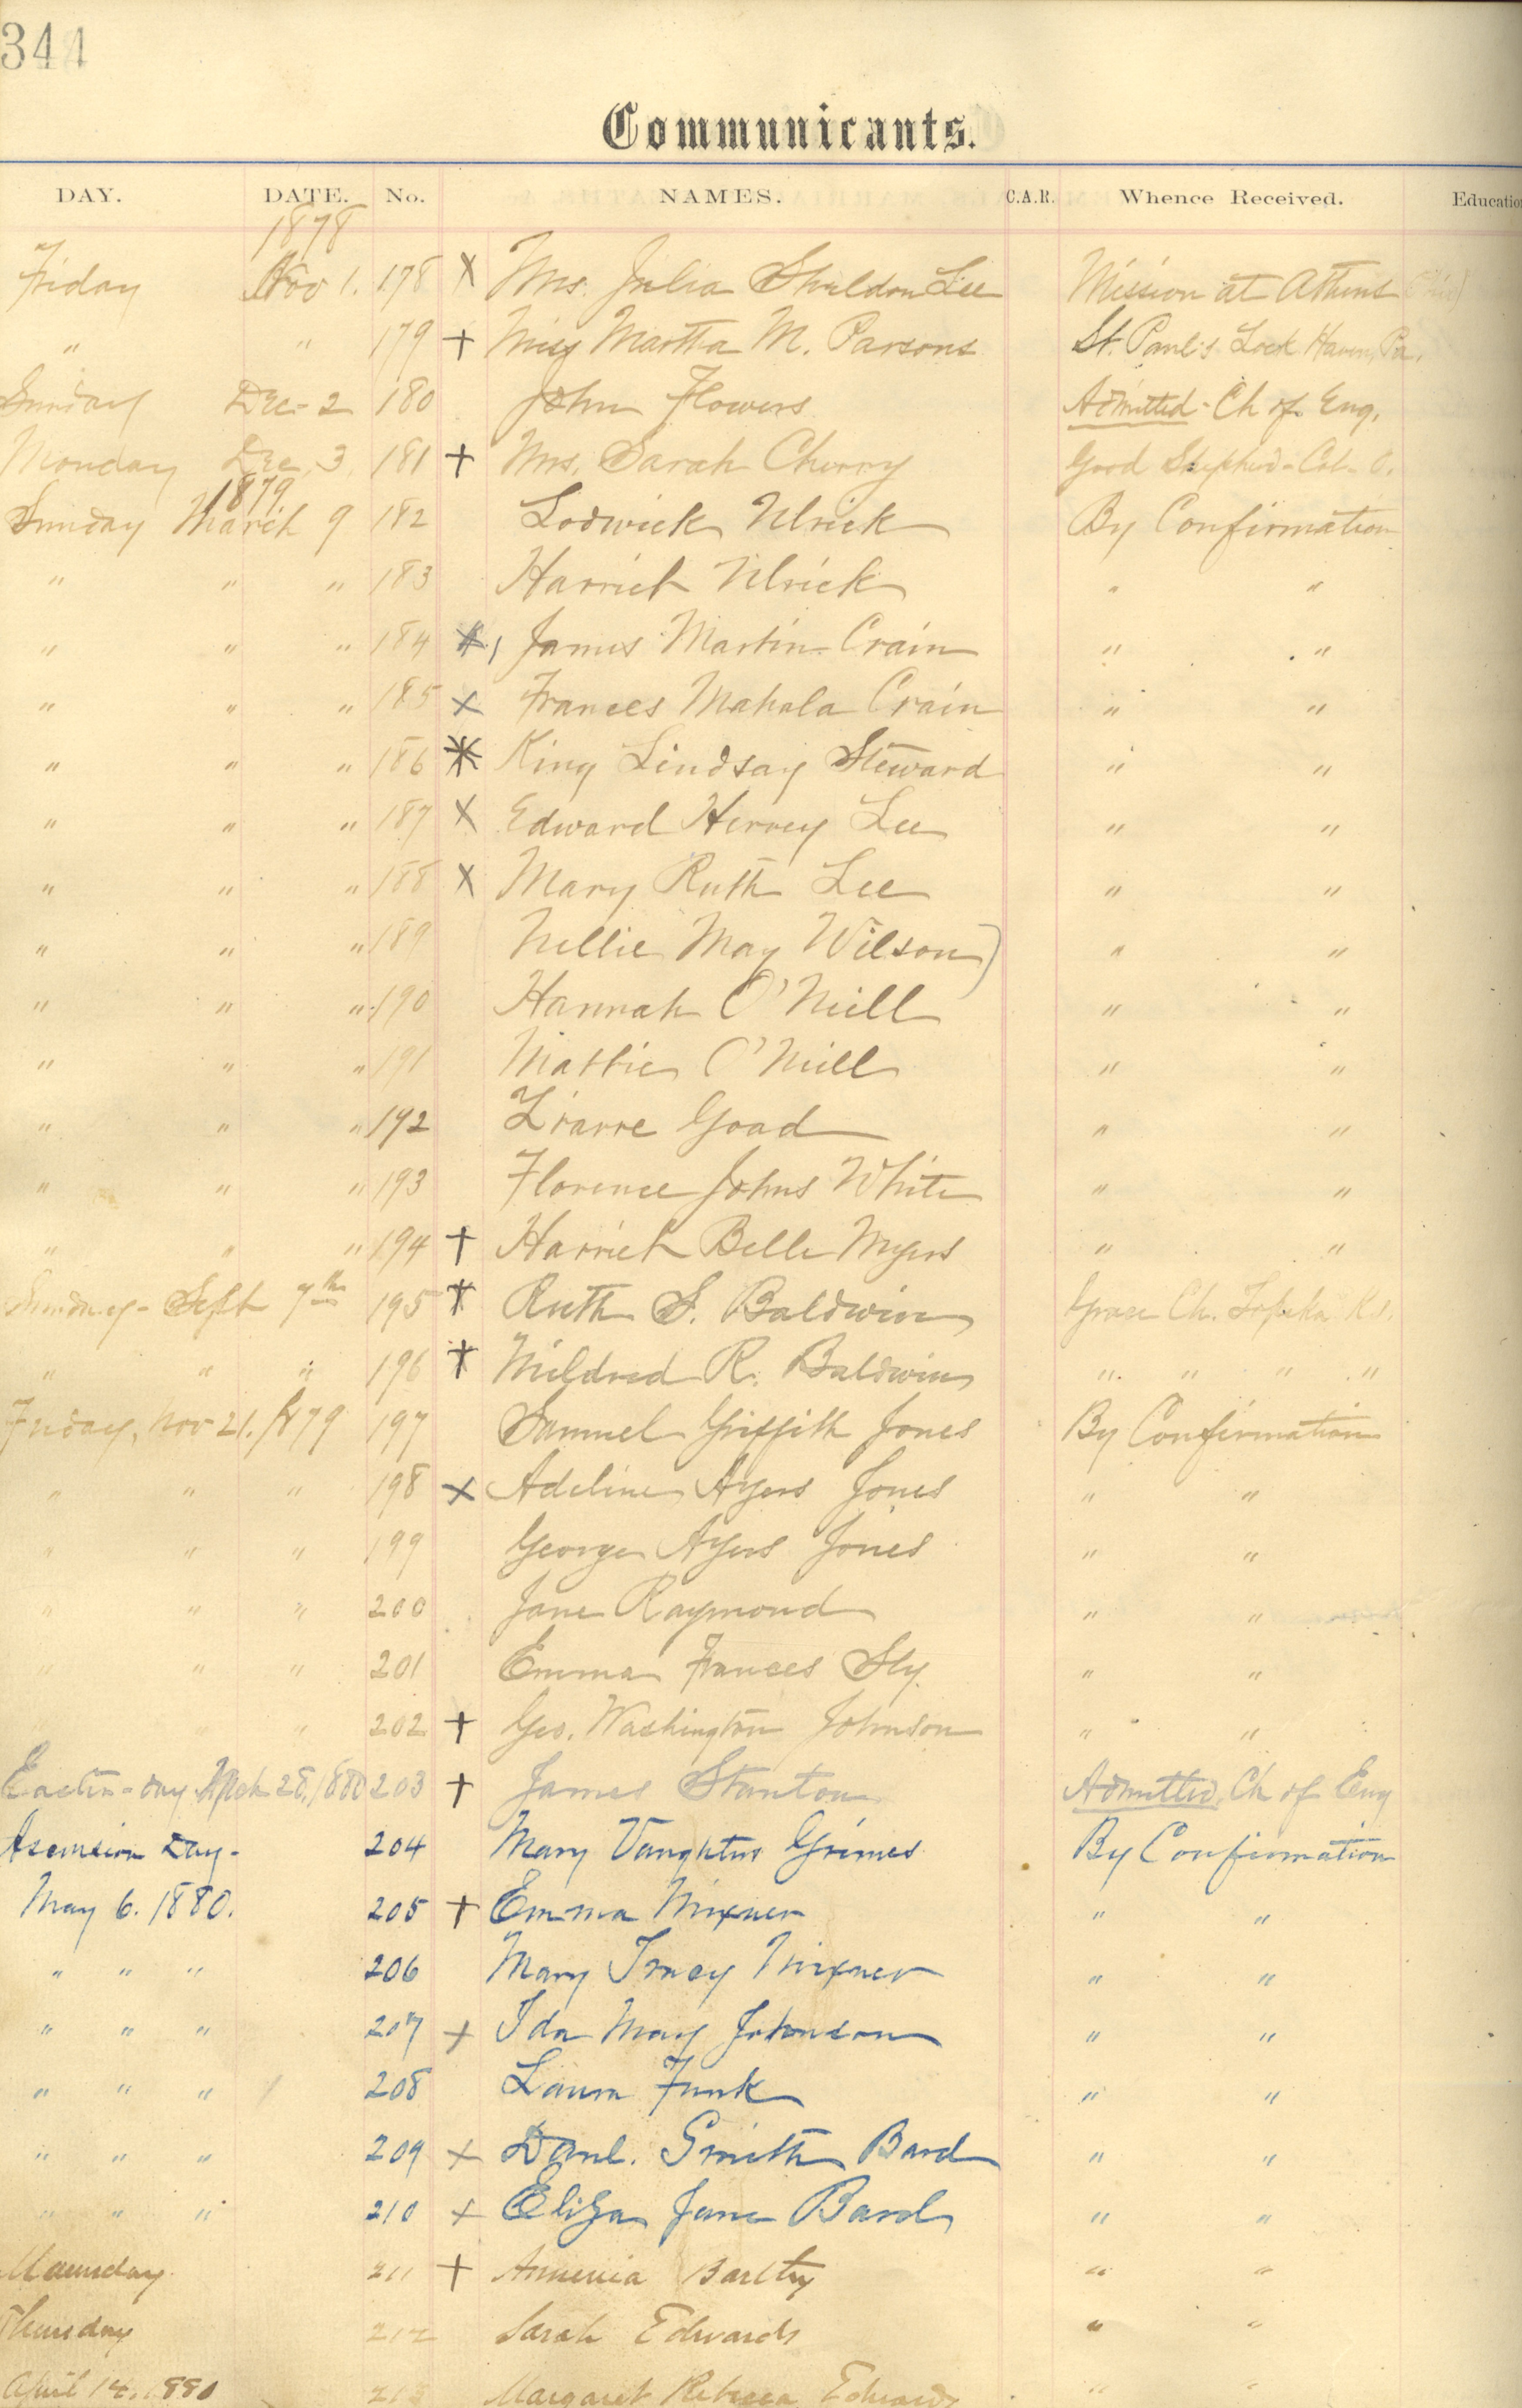 344
Communicants.
DAY. DATE. No. NAMES. C.A.R. Whence Received. Education
1878
Friday Nov 1. 178 X Mrs. Julia Sheldon Lee Mission at Athens
" " 179 + Miss Martha M. Parsons St. Paul's Lock Haven, Pa.
Sunday Dec. 2 180 John Flowers Admitted - Ch of Eng.
Monday Dec. 3. 181 + Mrs. Sarah Cherry Good Shepherd - Col - O.
1879
Sunday March 9 182 Lodwick Ulrick By Confirmation
" " " 183 Harriet Ulrick " "
" " " 184 X James Martin Crain " "
" " " 185 X Frances Mahala Crain " "
" " " 186 * King Lindsay Steward " "
" " " 187 X Edward Hervey Lee " "
" " " 188 X Mary Ruth Lee " "
" " " 189 Nellie May Wilson) " "
" " " 190 Hannah O'Neill " "
" " " 191 Mattie O'Neill " "
" " " 192 Goad " "
" " " 193 Florence Johns White " "
" " " 194 + Harriet Belle Myers " "
Sunday - Sept 7th 195 + Ruth S. Baldwin Grace Ch. Topeka Ks.
" " " 196 + Mildred R. Baldwin " " " "
Friday, Nov 21. 1879 197 Samuel Griffith Jones By Confirmation
" " " 198 X Adeline Ayers Jones " "
" " " 199 George Ayers Jones " "
" " " 200 Jane Raymond " "
" " " 201 Emma Frances Sly. " "
" " " 202 + Geo. Washington Johnson " "
Easter-day Mch 28, 1880 203 + James Stanton Admitted, Ch of Eng
Ascension Day - 204 Mary Vaughters Grimes By Confirmation
May 6. 1880. 205 + Emma Nixner " "
" " " 206 Mary Tracy Nixner " "
" " " 207 + Ida May Johnson " "
" " " 208 Laura Funk " "
" " " 209 + Danl. Smith Bard " "
" " " 210 + Eliza Jane Bard " "
Maunday 211 + Armenia " "
Thursday 212 Sarah Edwards " "
April 14. 1880 213 Margaret Rebecca Edwards " "